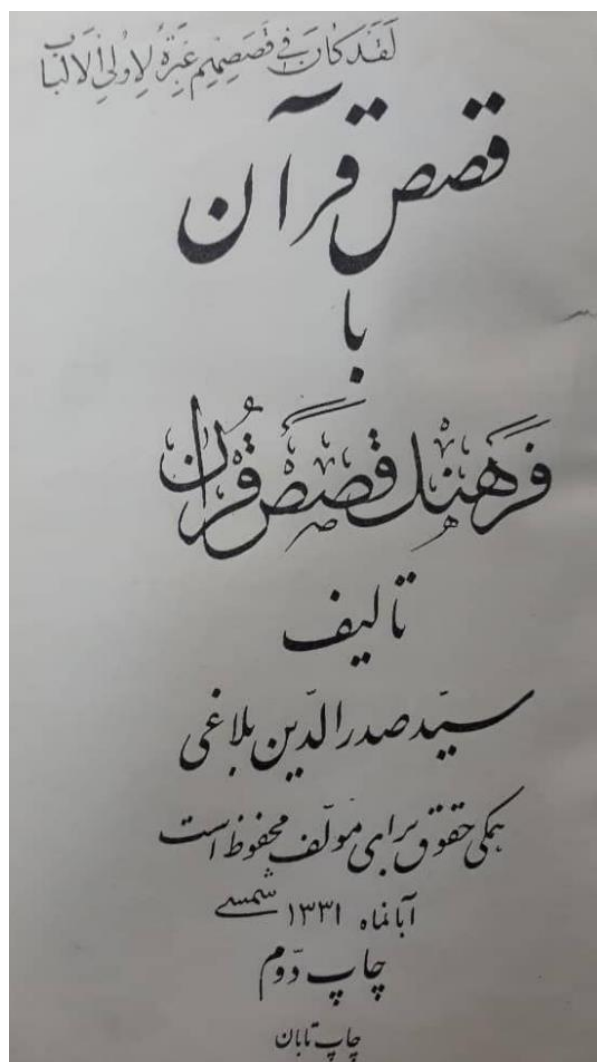 لَقَدْ كَانَ فِي قَصَصِهِمْ عِبْرَةٌ لِأُولِي الْأَلْبَابِ
قصص قرآن
با
فرهنگ قصص قرآن
تالیف
سید صدرالدّین بلاغی
همگی حقوق برای مؤلّف محفوظ است
آبانماه ۱۳۳۱ شمسے
چاپ دوّم
چاپ تابان